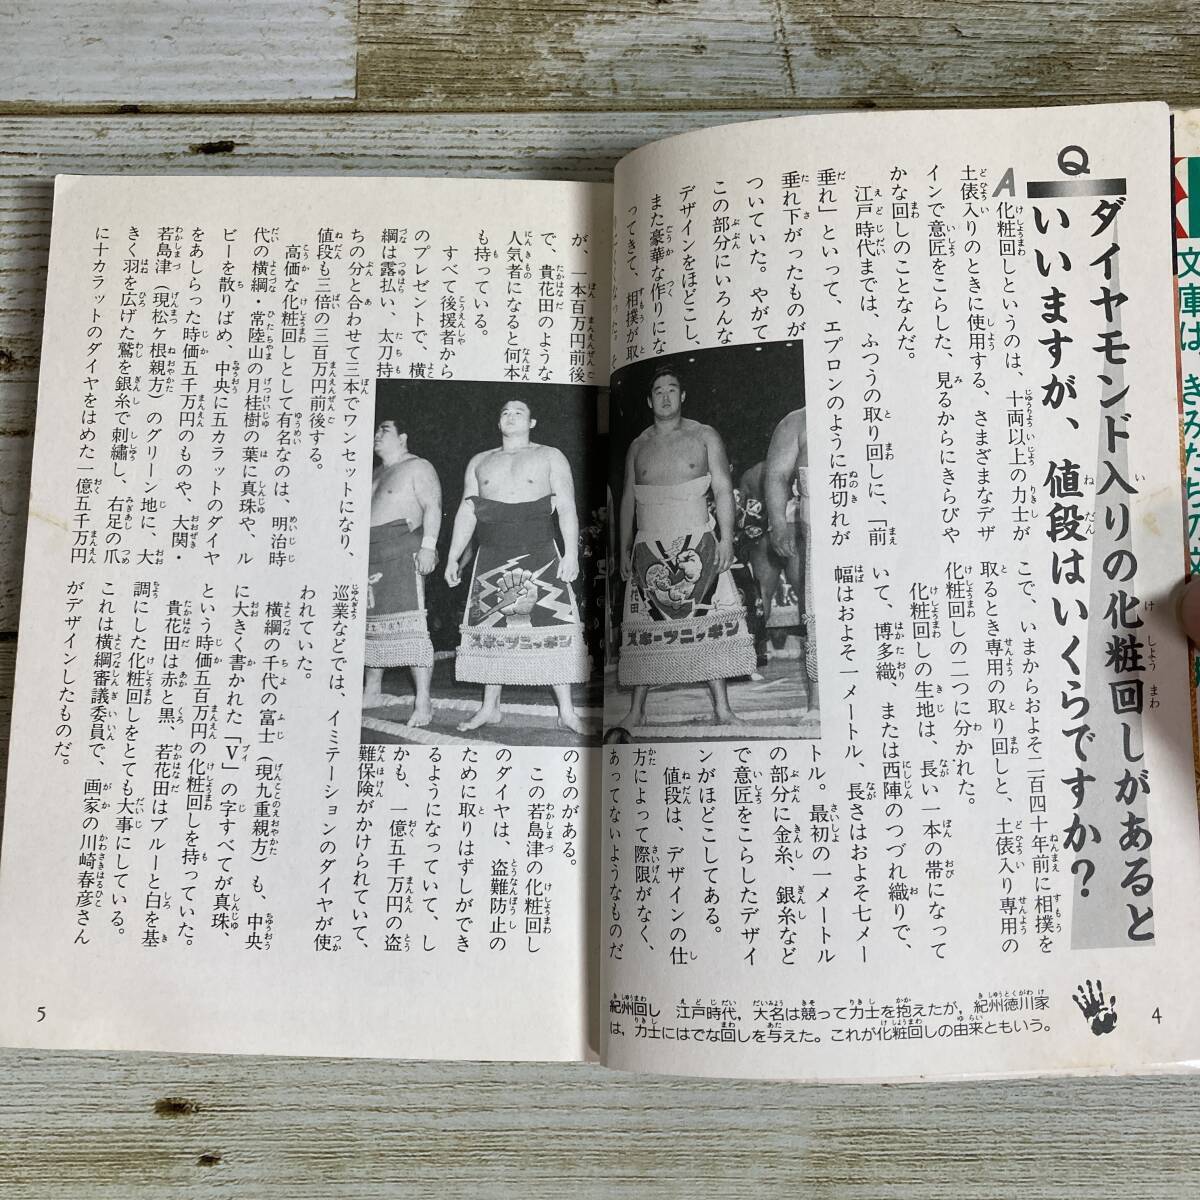 Q
ダイヤモンド入りの化粧回しがあると
いいますが、値段はいくらですか?
A 化粧回しというのは、十両以上の力士が
土俵入りのときに使用する、さまざまなデザ
インで意匠をこらした、見るからにきらびや
かな回しのことなんだ。
江戸時代までは、ふつうの取り回しに、「前
垂れ」といって、エプロンのように布切れが
垂れ下がったものが
ついていた。やがて
この部分にいろんな
デザインをほどこし、
また豪華な作りにな
ってきて、相撲が取
こで、いまからおよそ二百四十年前に相撲を
取るとき専用の取り回しと、土俵入り専用の
化粧回しの二つに分かれた。
化粧回しの生地は、長い一本の帯になって
いて、博多織、または西陣のつづれ織りで、
幅はおよそ一メートル、長さはおよそ七メー
トル。最初の一メートル
の部分に金糸、銀糸など
で意匠をこらしたデザイ
ンがほどこしてある。
値段は、デザインの仕
方によって際限がなく、
あってないようなものだ
スポーツニッポン
スポーツニッポン
紀州回し 江戸時代,大名は競って力士を抱えたが,紀州徳川家
は,力士にはでな回しを与えた。これが化粧回しの由来ともいう。
4
が、一本百万円前後
で、貴花田のような
人気者になると何本
も持っている。
すべて後援者から
のプレゼントで、横
綱は露払い、太刀持
ちの分と合わせて三本でワンセットになり、
値段も三倍の三百万円前後する。
高価な化粧回しとして有名なのは、明治時
代の横綱・常陸山の月桂樹の葉に真珠や、ル
ビーを散りばめ、中央に五カラットのダイヤ
をあしらった時価五千万円のものや、大関・
若島津(現松ヶ根親方)のグリーン地に、大
きく羽を広げた鷲を銀糸で刺繡し、右足の爪
に十カラットのダイヤをはめた一億五千万円
のものがある。
この若島津の化粧回し
のダイヤは、盗難防止の
ために取りはずしができ
るようになっていて、し
かも、一億五千万円の盗
難保険がかけられていて、
巡業などでは、イミテーションのダイヤが使
われていた。
横綱の千代の富士(現九重親方)も、中央
に大きく書かれた「V」の字すべてが真珠、
という時価五百万円の化粧回しを持っていた。
貴花田は赤と黒、若花田はブルーと白を基
調にした化粧回しをとても大事にしている。
これは横綱審議委員で、画家の川崎春彦さん
がデザインしたものだ。
5